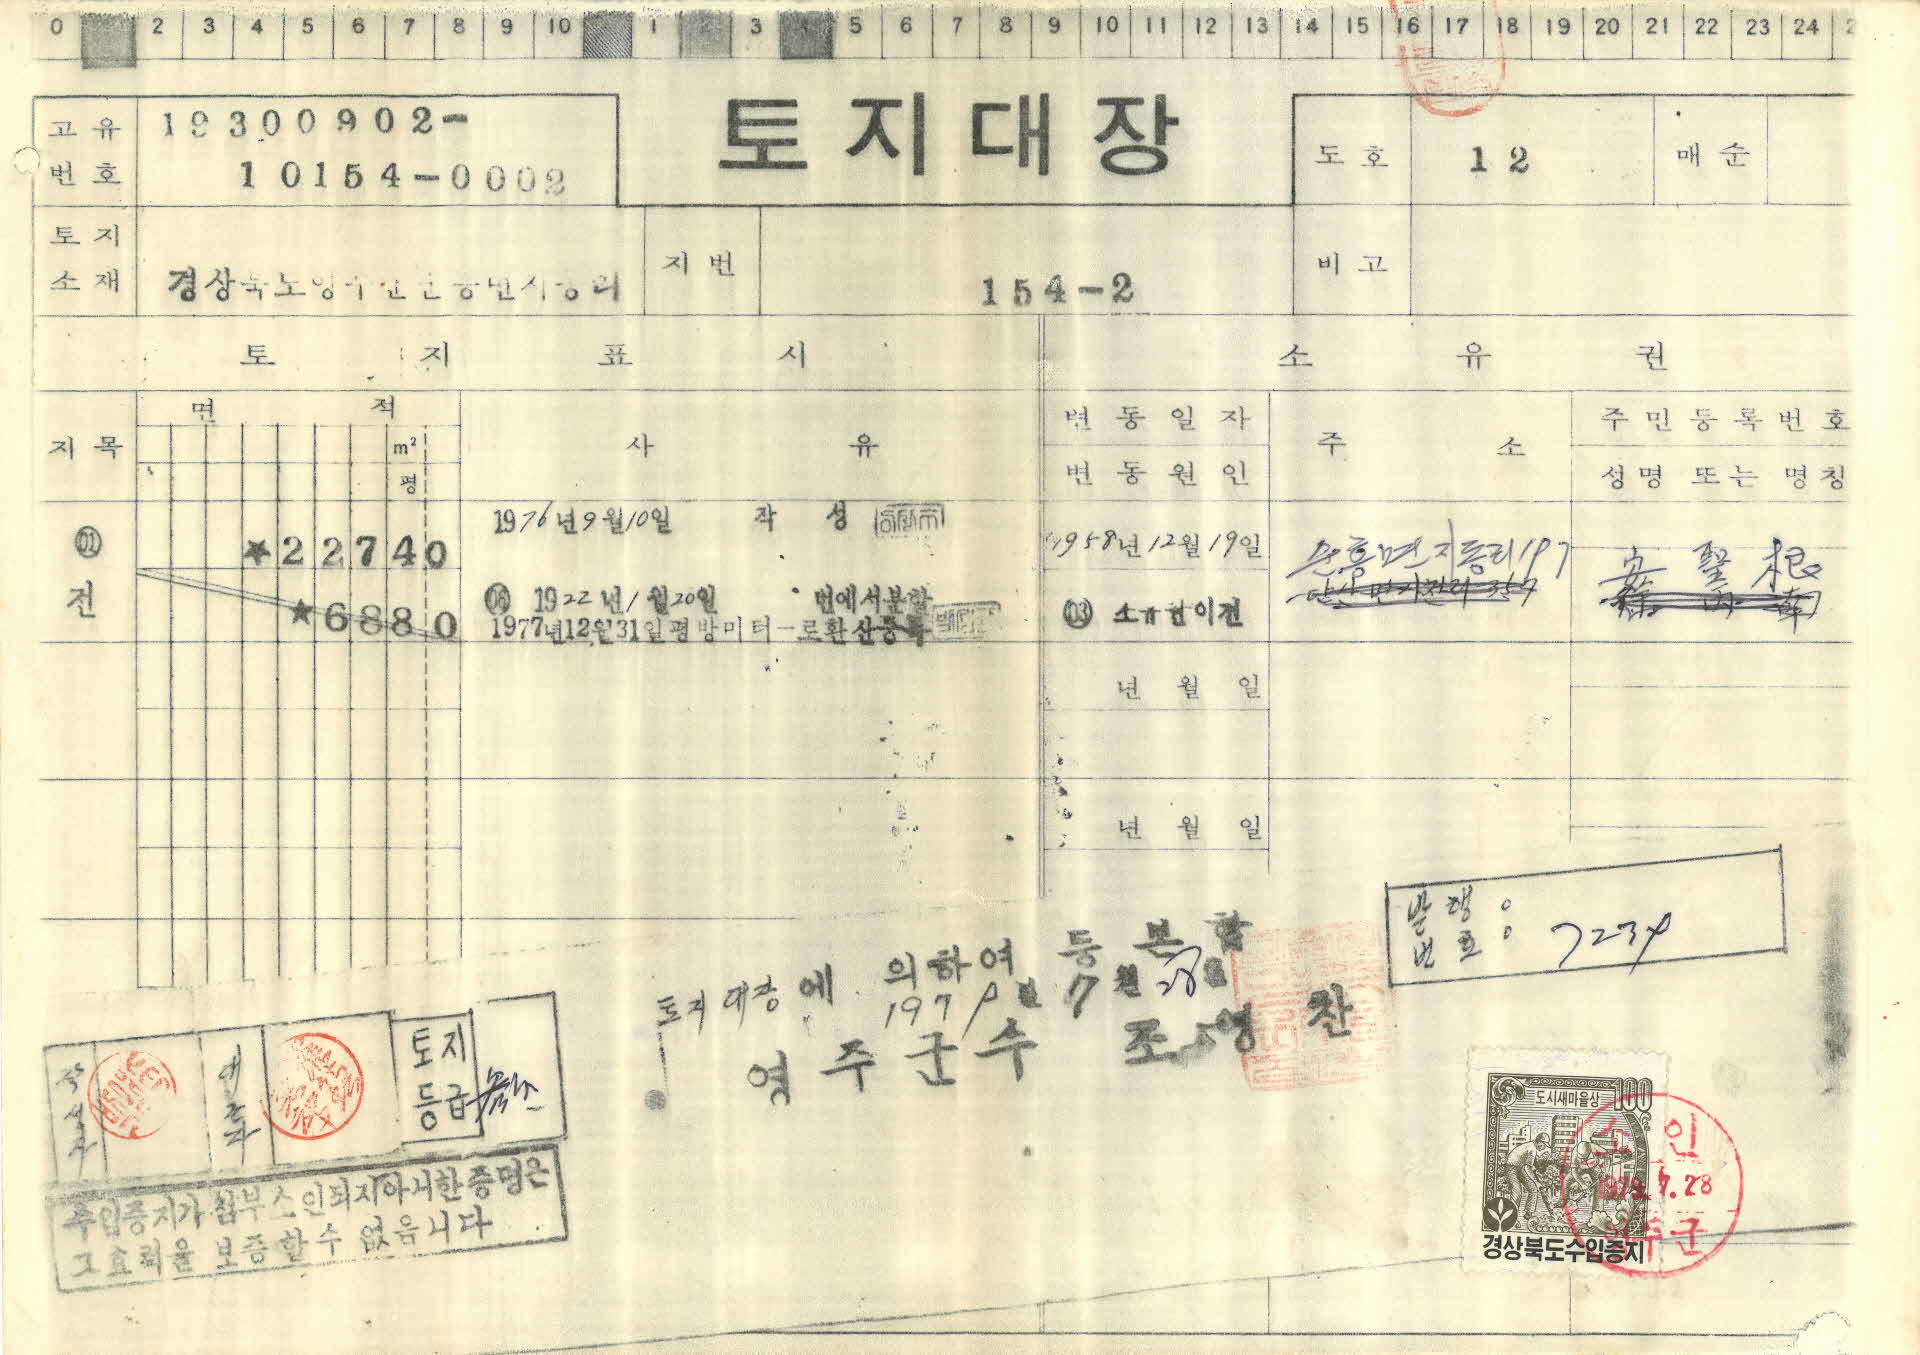 0 2 3 4 5 6 7 8 9 10 1 3 5 6 7 8 9 10 11 12 13 14 15 16 17 18 19 20 21 22 23 24
고유번호 19300902-
10154-0002
토지대장
도호 12 매순
토지소재 경상북도영주군단흥면지동리
지번 154-2
비고
토지표시
소유권
지목
면적
m²
평
사유
변동일자
변동원인
주소
주민등록번호
성명 또는 명칭
01
전
*22740
*6880
1976년9월10일 작성
1922년1월20일 번에서분할
1977년12월31일평방미터로환산등록
1958년12월19일
03 소유권이전
순흥면지동리197
安聖根
년 월 일
년 월 일
발행번호: 7234
토지대장에 의하여 등본함
1979년 7월 28일
영주군수 조영찬
작성자
대조자
토지등급
수입증지가 첨부소인되지아니한증명은
그효력을 보증할수 없읍니다
도시새마을상 100
경상북도수입증지
소인
1979.7.28
영주군